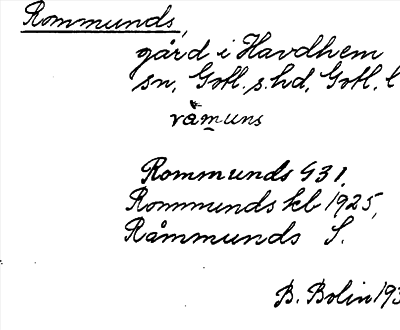 Rommunds,
gård i Havdhem
sn, Gotl. s. hd, Gotl. l
råmuns
Rommunds G31.
Rommunds kb 1925,
Råmmunds S.
B. Bolin 193